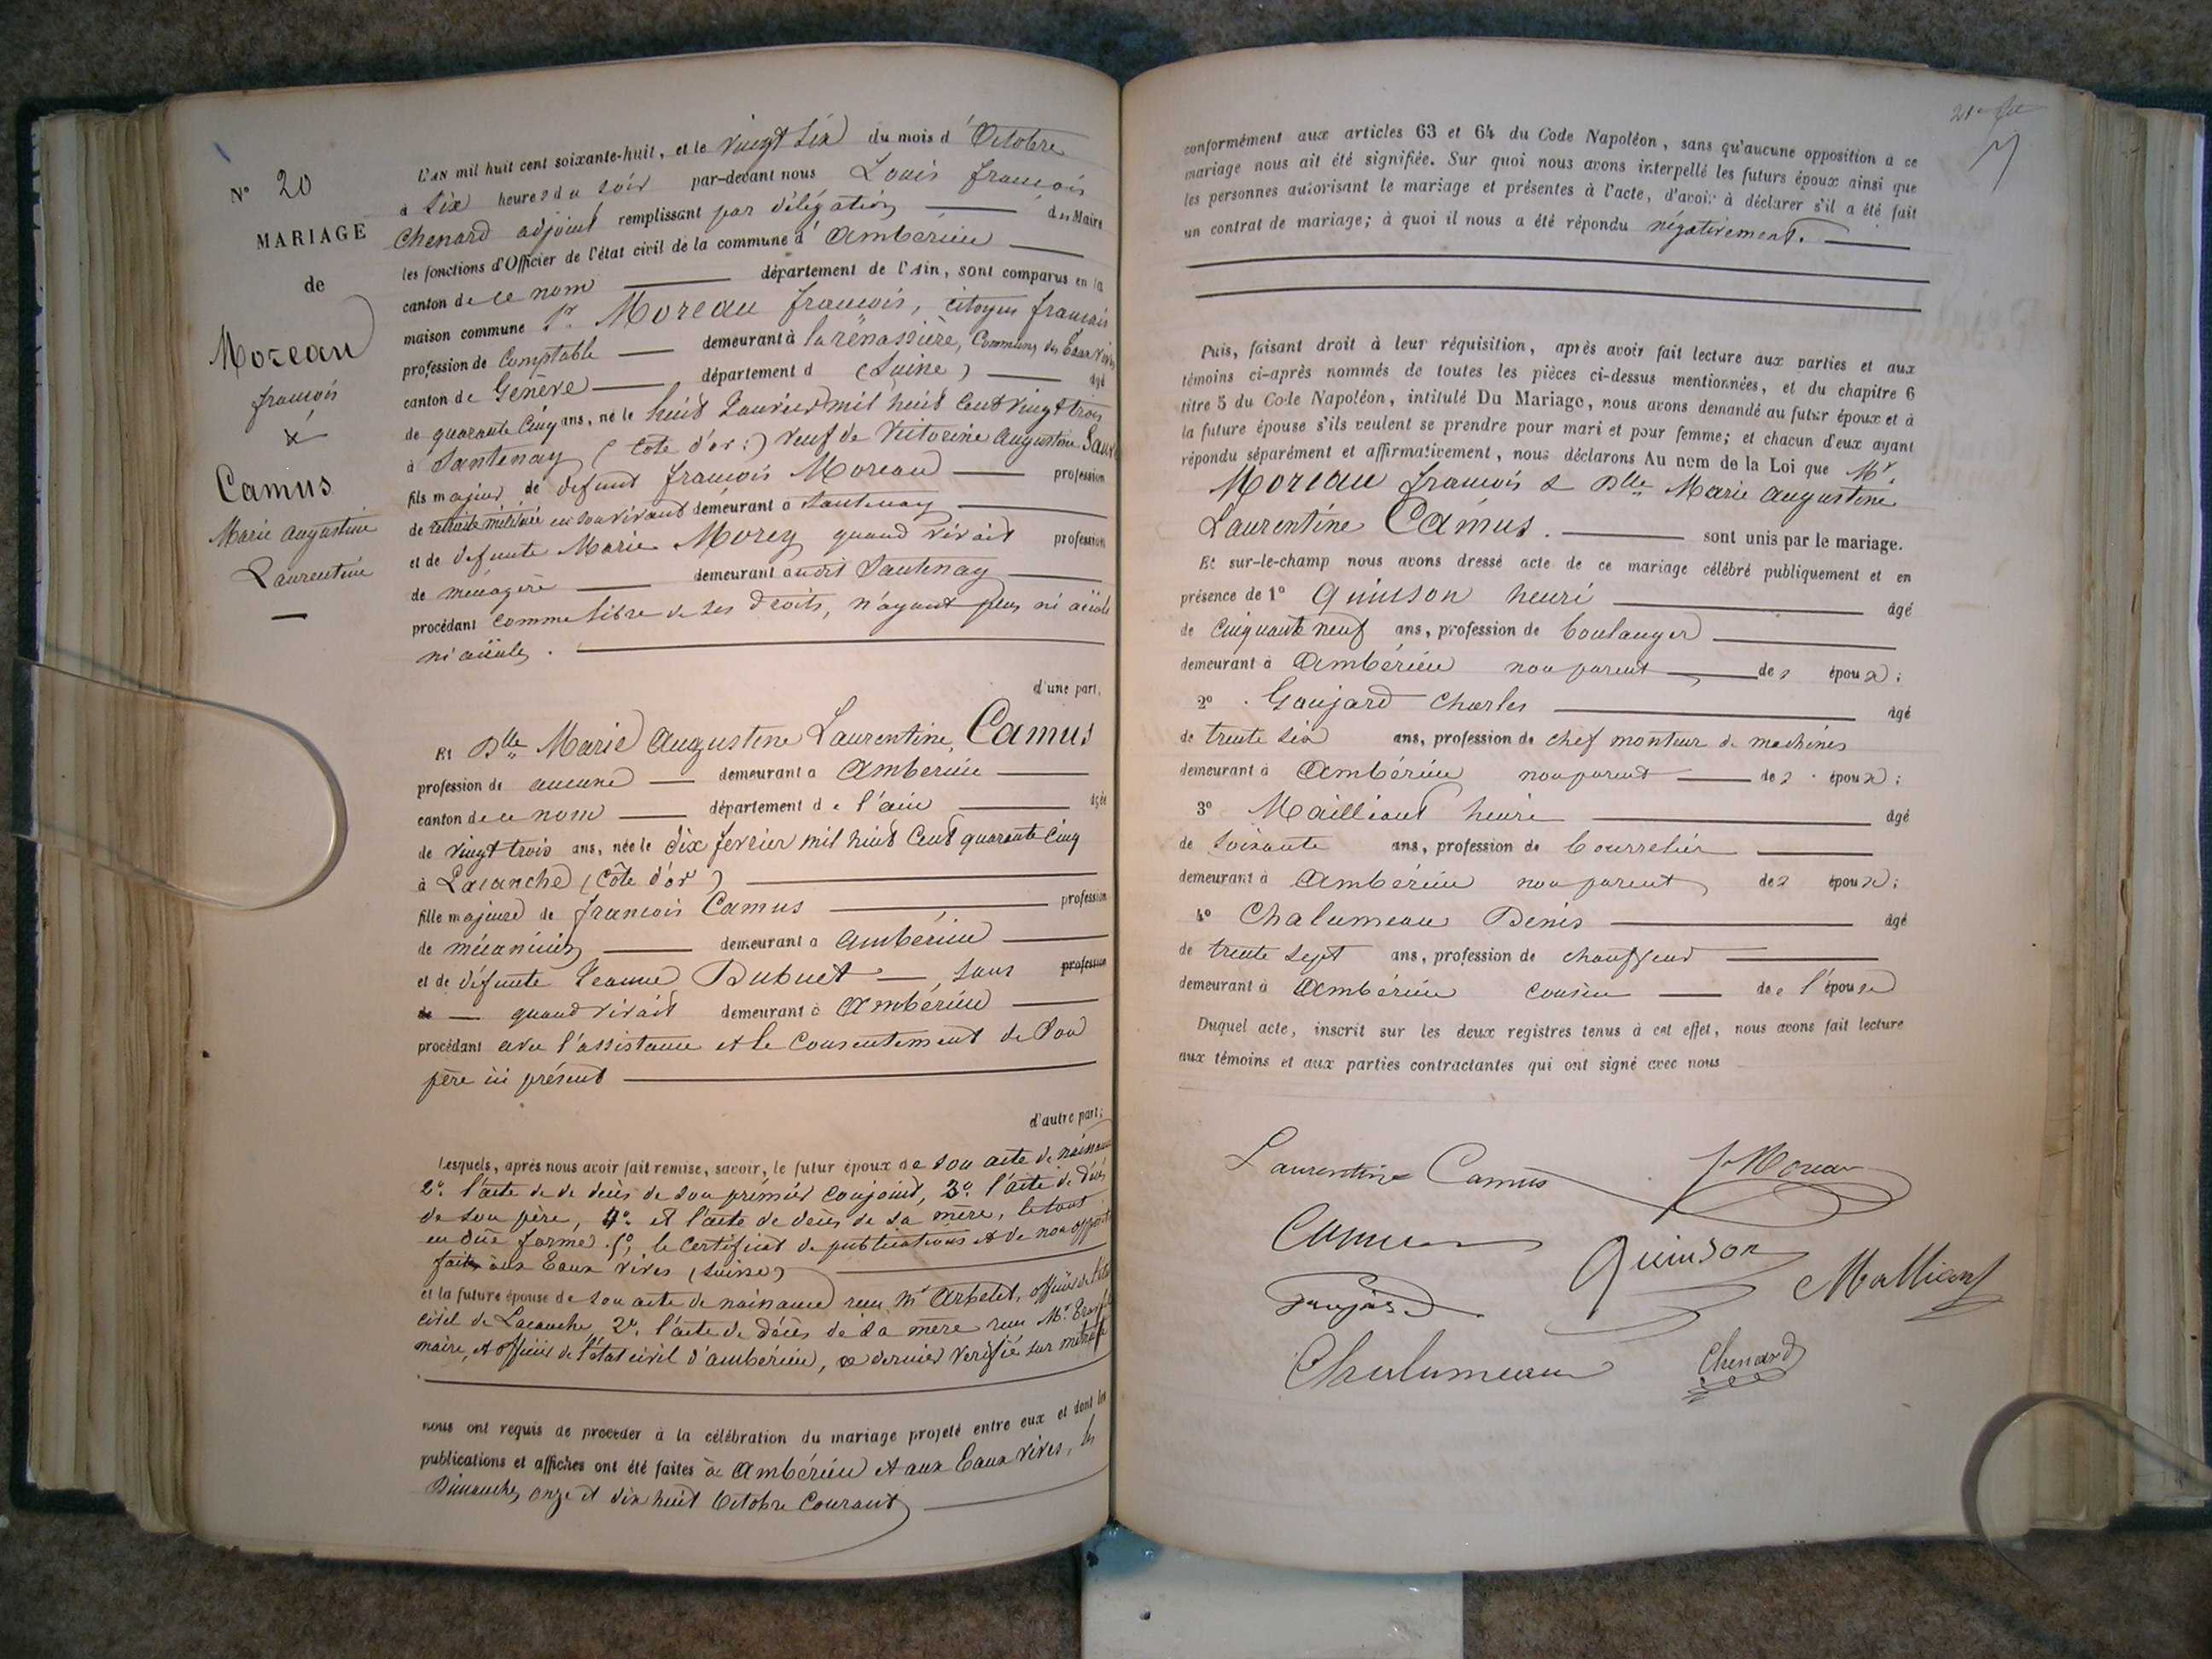 N° 20
MARIAGE
de
Moreau
françois
&
Camus
Marie augustine
Laurentine
L'AN mil huit cent soixante-huit, et le vingt six du mois d'Octobre
à six heures du soir par-devant nous Louis françois
Chenard adjoint remplissant par délégation des Maire
les fonctions d'Officier de l'état civil de la commune d'Ambérieu
canton de ce nom département de l'Ain, sont comparus en la
maison commune Sr. Moreau françois, citoyen français
profession de Comptable demeurant à la rénassière, Commune des Eaux vives
canton de Genêve département d (Suisse) âgé
de quarante cinq ans, né le huit Janvier mil huit cent vingt trois
à Santenay (côte d'or:) veuf de Victorine augustine
fils majeur de défunt françois Moreau profession
de retraité militaire en son vivant demeurant à Santenay
et de défunte Marie Morey quand vivait profession
de ménagère demeurant audit Santenay
procédant comme libre de ses droits, n'ayant plus ni aïeuls
ni aïeules.
d'une part,
Et Dlle Marie Augustine Laurentine, Camus
profession de aucune demeurant à Ambérieu
canton de ce nom département de l'ain âgée
de vingt trois ans, née le dix fevrier mil huit cent quarante cinq
à Lacanche (côte d'or)
fille majeure de françois Camus profession
de mécanicien demeurant à Ambérieu
et de défunte Jeanne Dubuet sans profession
de quand vivait demeurant à Ambérieu
procédant avec l'assistance et le consentement de son
père ici présent
d'autre part;
Lesquels, après nous avoir fait remise, savoir, le futur époux de son acte de naissance
2°. l'acte de de décès de son prémier conjoint, 3°. l'acte de décès
de son père, 4°. et l'acte de décès de sa mère, le tout
en dûe forme. 5°, le certificat de publications et de non opposition
faites aux Eaux vives (suisse)
et la future épouse de son acte de naissance reçu Mr Arbelet, officier de l'état
civil de Lacanche 2°. l'acte de décès de sa mère reçu Mr.
maire, et officier de l'état civil d'ambérieu, ce dernier verifié sur minute
nous ont requis de procéder à la célébration du mariage projeté entre eux et dont les
publications et affiches ont été faites à Ambérieu et aux Eaux vives, les
Dimanches onze et dix huit Octobre Courant
conformément aux articles 63 et 64 du Code Napoléon, sans qu'aucune opposition à ce
mariage nous ait été signifiée. Sur quoi nous avons interpellé les futurs époux ainsi que
les personnes autorisant le mariage et présentes à l'acte, d'avoir à déclarer s'il a été fait
un contrat de mariage; à quoi il nous a été répondu négativement.
Puis, faisant droit à leur réquisition, après avoir fait lecture aux parties et aux
témoins ci-après nommés de toutes les pièces ci-dessus mentionnées, et du chapitre 6
titre 5 du Code Napoléon, intitulé Du Mariage, nous avons demandé au futur époux et à
la future épouse s'ils veulent se prendre pour mari et pour femme; et chacun d'eux ayant
répondu séparément et affirmativement, nous déclarons Au nom de la Loi que Mr.
Moreau françois & Dlle Marie augustine
Laurentine Camus. sont unis par le mariage.
Et sur-le-champ nous avons dressé acte de ce mariage célébré publiquement et en
présence de 1° Quinson henri âgé
de cinquante neuf ans, profession de boulanger
demeurant à Ambérieu non parent des époux;
2° Goujard Charles âgé
de trente six ans, profession de chef monteur de machines
demeurant à Ambérieu non parent des époux;
3° Mailliant henri âgé
de soixante ans, profession de bourrelier
demeurant à Ambérieu non parent des époux;
4° Chalumeau Denis âgé
de trente sept ans, profession de chauffeur
demeurant à Ambérieu cousin de l'épouse
Duquel acte, inscrit sur les deux registres tenus à cet effet, nous avons fait lecture
aux témoins et aux parties contractantes qui ont signé avec nous
Laurentine Camus f Moreau
Camus Quinson Malliant
Goujard
Chalumeau Chenard